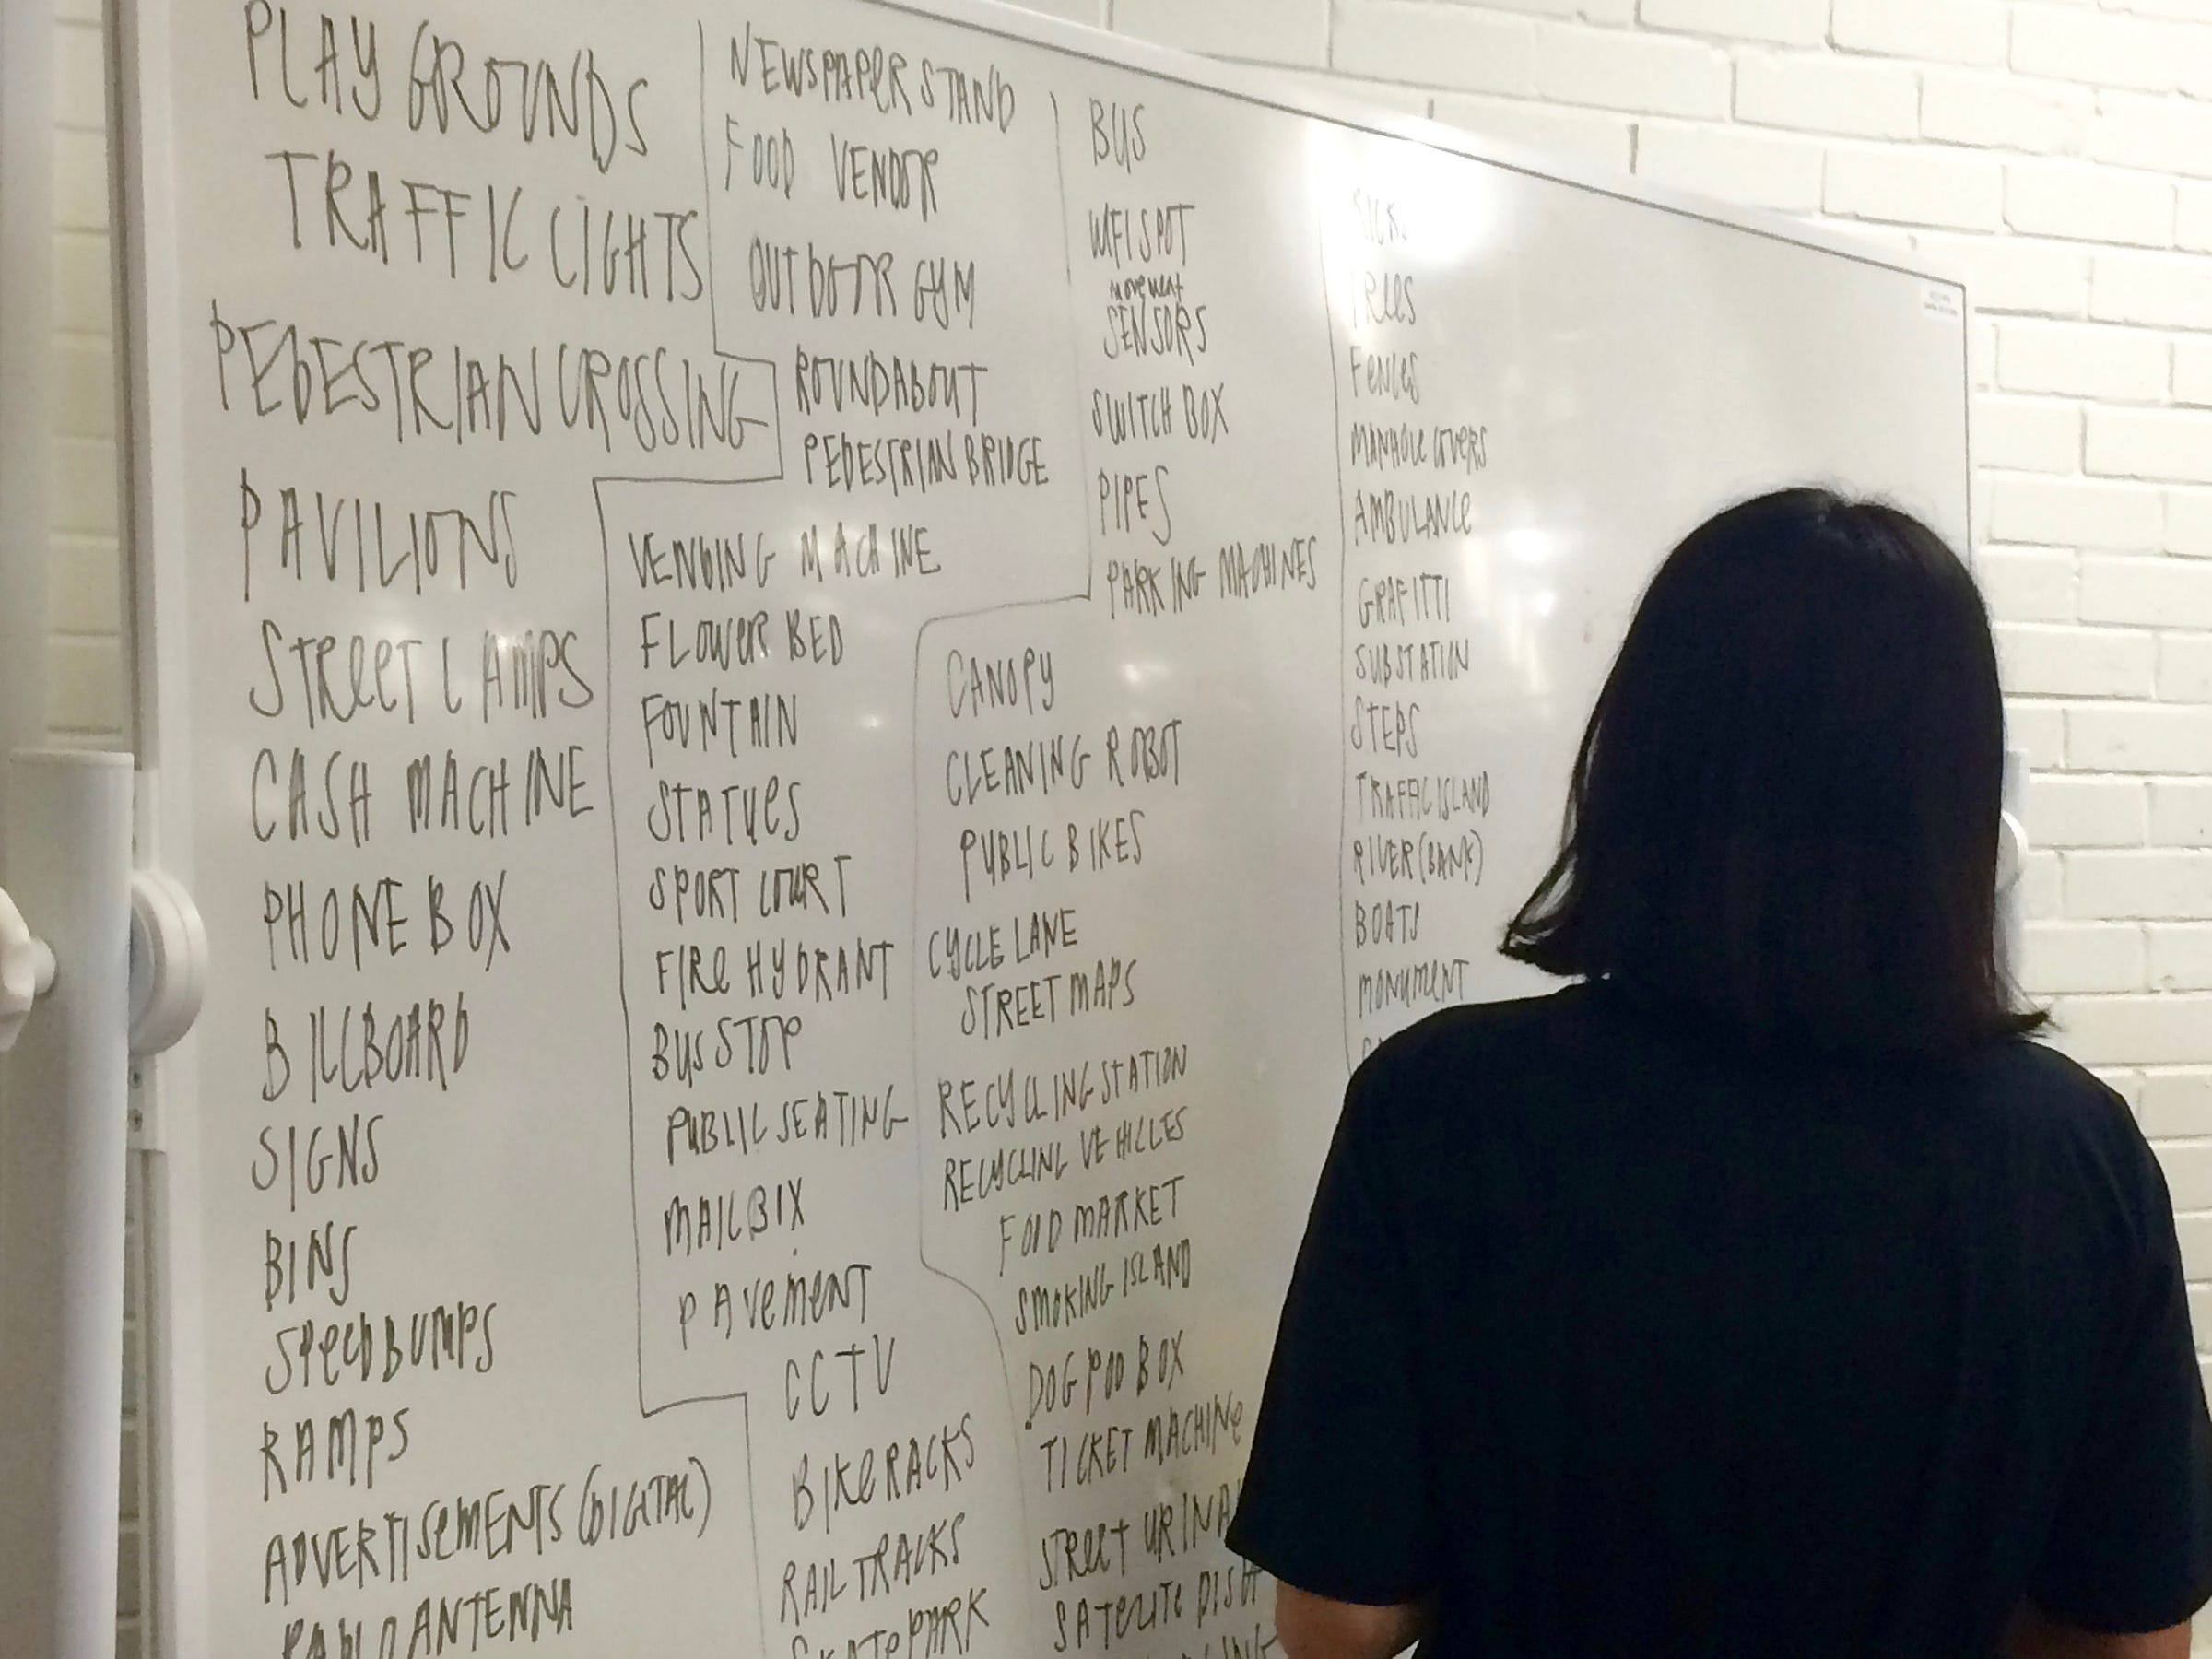 PLAY GROUNDS
TRAFFIC LIGHTS
PEDESTRIAN CROSSING
PAVILIONS
STREET LAMPS
CASH MACHINE
PHONE BOX
BILLBOARD
SIGNS
BINS
SPEEDBUMPS
RAMPS
ADVERTISEMENTS (DIGITAL)
RADIO ANTENNA
NEWSPAPER STAND
FOOD VENDOR
OUTDOOR GYM
ROUNDABOUT
PEDESTRIAN BRIDGE
VENDING MACHINE
FLOWER BED
FOUNTAIN
STATUES
SPORT COURT
FIRE HYDRANT
BUS STOP
PUBLIC SEATING
MAILBOX
PAVEMENT
CCTV
BIKE RACKS
RAIL TRACKS
SKATEPARK
BUS
WIFI SPOT
movement
SENSORS
SWITCH BOX
PIPES
PARKING MACHINES
CANOPY
CLEANING ROBOT
PUBLIC BIKES
CYCLE LANE
STREET MAPS
RECYCLING STATION
RECYCLING VEHICLES
FOOD MARKET
SMOKING ISLAND
DOG POO BOX
TICKET MACHINE
STREET URINA
SATELITE DISH
TREES
FENCES
MANHOLE COVERS
AMBULANCE
GRAFITTI
SUBSTATION
STEPS
TRAFFIC ISLAND
RIVER (BANK)
BOATS
MONUMENT